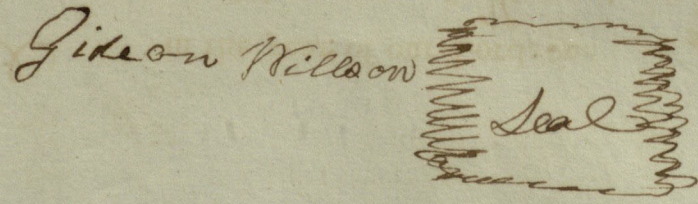 Gideon Willson Seal